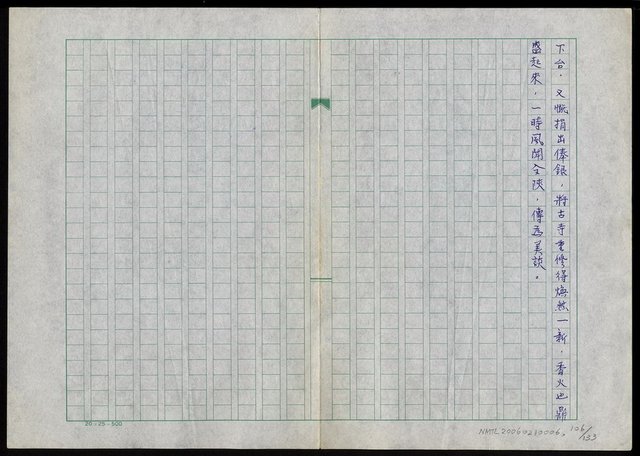 下台。又慨捐出俸銀，將古寺重修得煥然一新，香火也鼎
盛起來，一時風聞全陝，傳為美談。
20×25=500
NMTL20060210006.
106/133